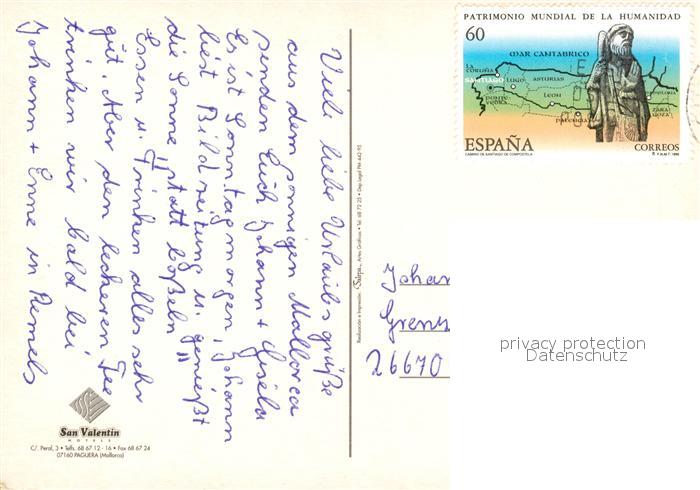 Viele liebe Urlaubsgrüße
aus dem sonnigen Mallorca
senden Euch Johann + Gisela
Es ist Sonntagmorgen, Johann
liest Bildzeitung u. genießt
die Sonne statt boßeln
Essen u. Trinken alles sehr
gut. Aber den leckeren Tee
trinken wir bald bei
Johann + Enne in Remels
San Valentín
HOTELS
C/. Peral, 3 • Telfs. 68 67 12 - 16 • Fax 68 67 24
07160 PAGUERA (Mallorca)
Realización e Impresión: Artes Gráficas • Tel. 68 72 25 • Dep. Legal PM 442-95
PATRIMONIO MUNDIAL DE LA HUMANIDAD
60
MAR CANTABRICO
LA CORUÑA
SANTIAGO
LUGO
ASTURIAS
PONTEVEDRA
LEON
PAMPLONA
PALENCIA
ZARAGOZA
ESPAÑA
CORREOS
CAMINO DE SANTIAGO DE COMPOSTELA
Johan
Grens
26670
privacy protection
Datenschutz